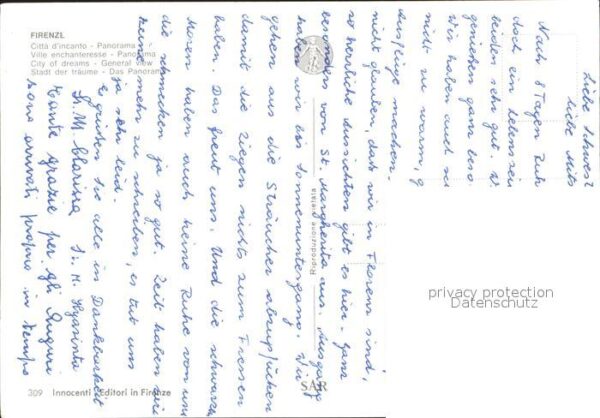 FIRENZE
Città d'incanto - Panorama
Ville enchanteresse - Panorama
City of dreams - General view
Stadt der träume - Das Panorama
Liebe Schwest
Liebe Mits
Nach 8 Tagen Zuh
doch ein
beiden sehr gut. W
genießen ganz beso
Wir haben auch sc
nicht zu warm, g
Ausflüge machen.
nicht glauben, daß wir in Florenz sind,
so herrliche Aussichten gibt es hier. Ganz
besonders von St. Margherita aus. Ausgang
wir bei Sonnenuntergang. Wir
gehen aus die Sträucher abzupflücken
damit die Ziegen nichts zum Fressen
haben. Das freut uns. Und die schwarzen
Maren haben auch keine Ruhe von uns
die schmecken ja so gut. Zeit haben wir
keine mehr zu schreiben, es tut uns
ja sehr leid.
Es grüßen Sie alle in Dankbarkeit
Sr. M. Sr. M. Hyazinta
Tante grazie per gli Auguri
sono arrivati proprio in tempo
Riproduzione vietata
309 Innocenti Editori in Firenze
SAR
privacy protection
Datenschutz